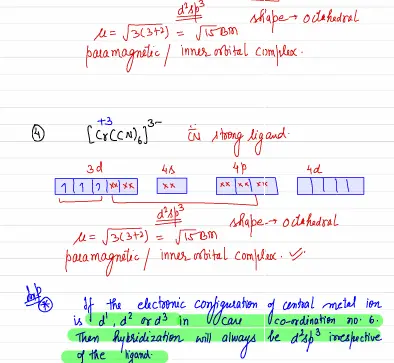 d²sp³
μ = √3(3+2) = √15 BM shape → octahedral
paramagnetic / inner orbital complex.
+3
④ [Cr(CN)₆]³⁻ C̈N strong ligand.
3d 4s 4p 4d
1 1 1 xx xx xx xx xx xx
d²sp³
μ = √3(3+2) = √15 BM shape → octahedral
paramagnetic / inner orbital complex.
Imp
* If the electronic configuration of central metal ion
is d¹, d² or d³ in case co-ordination no. 6.
Then hybridization will always be d²sp³ irrespective
of the ligand.